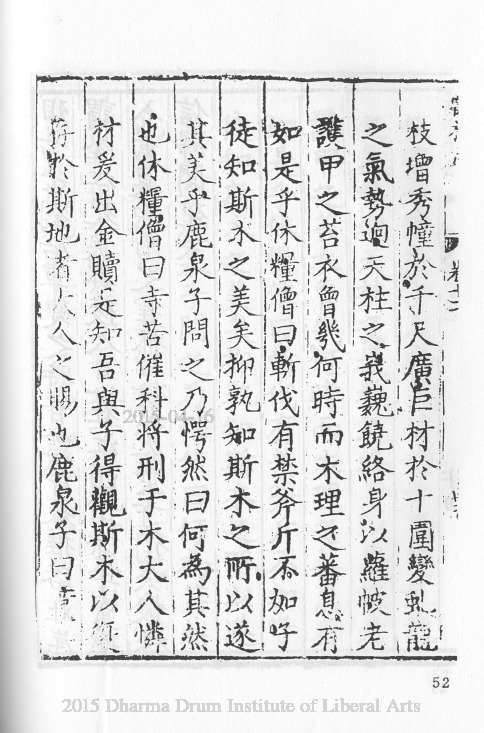 枝增秀幢於千尺廣巨材於十圍變虬龍
之氣勢迥天柱之峩巍饒絡身以蘿帔老
護甲之苔衣曾幾何時而木理之蕃息有
如是乎休糧僧曰斬伐有禁斧斤不加吁
徒知斯木之美矣抑孰知斯木之所以遂
其美乎鹿泉子問之乃愕然曰何為其然
也休糧僧曰寺苦催科将刑于木大人憐
材爰出金贖是知吾與子得觀斯木以
存於斯地者大人之賜也鹿泉子曰
卷十二
52
2015-04-16
2015 Dharma Drum Institute of Liberal Arts